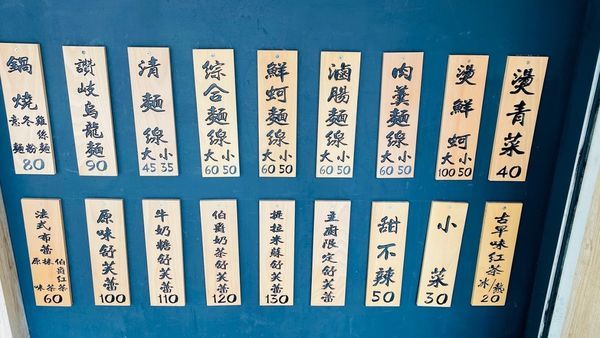 燙青菜 40
燙鮮蚵 大100 小50
肉羹麵線 大60 小50
滷腸麵線 大60 小50
鮮蚵麵線 大60 小50
綜合麵線 大60 小50
清麵線 大45 小35
讚岐烏龍麵 90
鍋燒 雞絲麵 冬粉 意麵 80
古早味紅茶 冰/熱 20
小菜 30
甜不辣 50
主廚限定舒芙蕾
提拉米蘇舒芙蕾 130
伯爵奶茶舒芙蕾 120
牛奶糖舒芙蕾 110
原味舒芙蕾 100
法式布蕾 原味 抹茶 伯爵紅茶 60